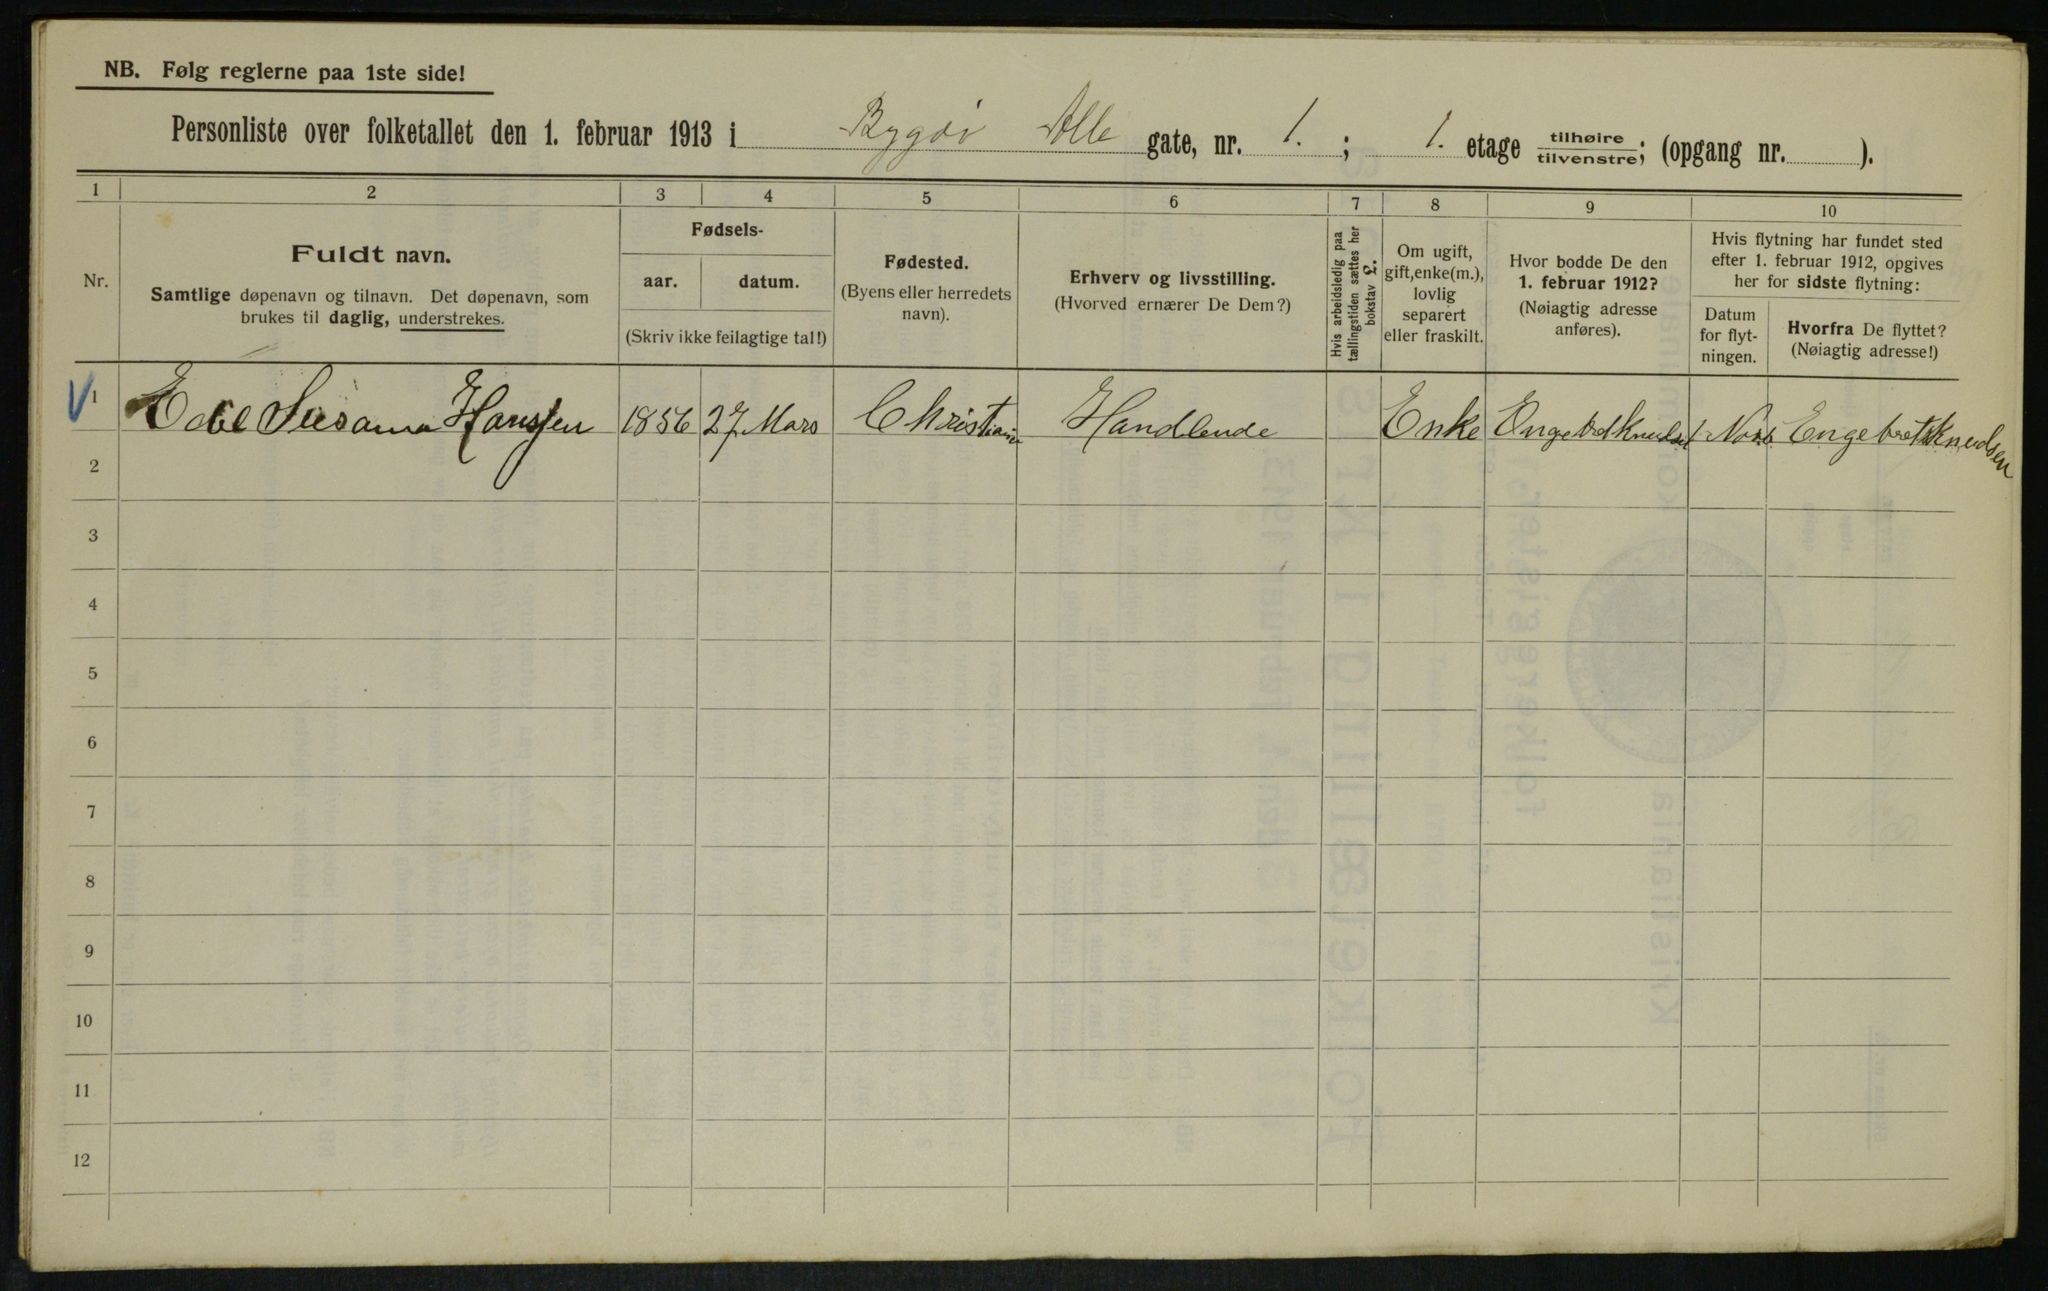 NB. Følg reglerne paa 1ste side!
Personliste over folketallet den 1. februar 1913 i Bygdö Alle gate, nr. 1. ; 1. etage tilhøire tilvenstre; (opgang nr. ).
1 2 3 4 5 6 7 8 9 10
Nr.
Fuldt navn.
Samtlige døpenavn og tilnavn. Det døpenavn, som
brukes til daglig, understrekes.
Fødsels-
aar. datum.
(Skriv ikke feilagtige tal!)
Fødested.
(Byens eller herredets
navn).
Erhverv og livsstilling.
(Hvorved ernærer De Dem?)
Hvis arbeidsledig paa
tællingstiden sættes her
bokstav L.
Om ugift,
gift, enke(m.),
lovlig
separert
eller fraskilt.
Hvor bodde De den
1. februar 1912?
(Nøiagtig adresse
anføres).
Hvis flytning har fundet sted
efter 1. februar 1912, opgives
her for sidste flytning:
Datum
for flyt-
ningen.
Hvorfra De flyttet?
(Nøiagtig adresse!)
1 Susana Hansen 1856 27 Mars Christiania Handlende Enke 1 Engebretknudsen
2
3
4
5
6
7
8
9
10
11
12